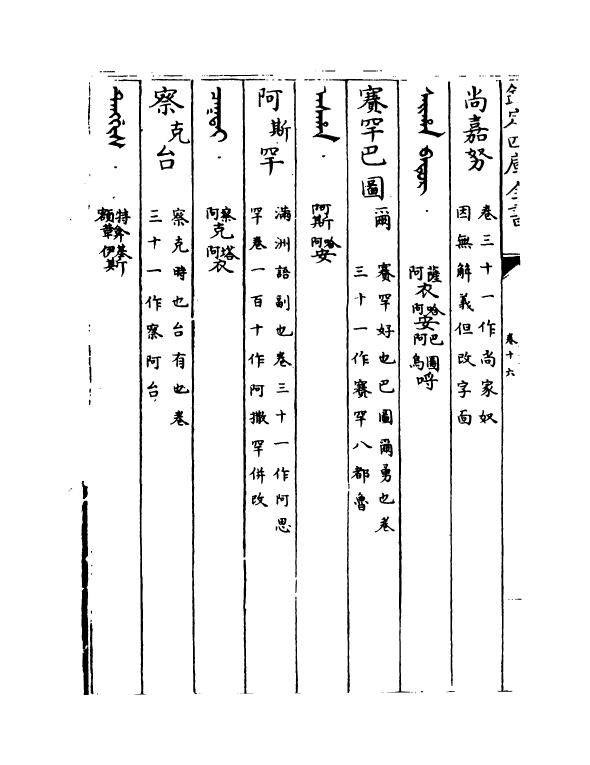 欽定四庫全書
卷十六
尚嘉努
卷三十一作尚家奴
因無解義但改字面
薩阿衣哈阿安巴阿圖烏嘑
賽罕巴圖爾
賽罕好也巴圖爾勇也卷
三十一作賽罕八都魯
阿斯哈阿安
阿斯罕
滿洲語副也卷三十一作阿思
罕卷一百十作阿撒罕併改
察阿克塔阿衣
察克台
察克時也台有也卷
三十一作察阿台